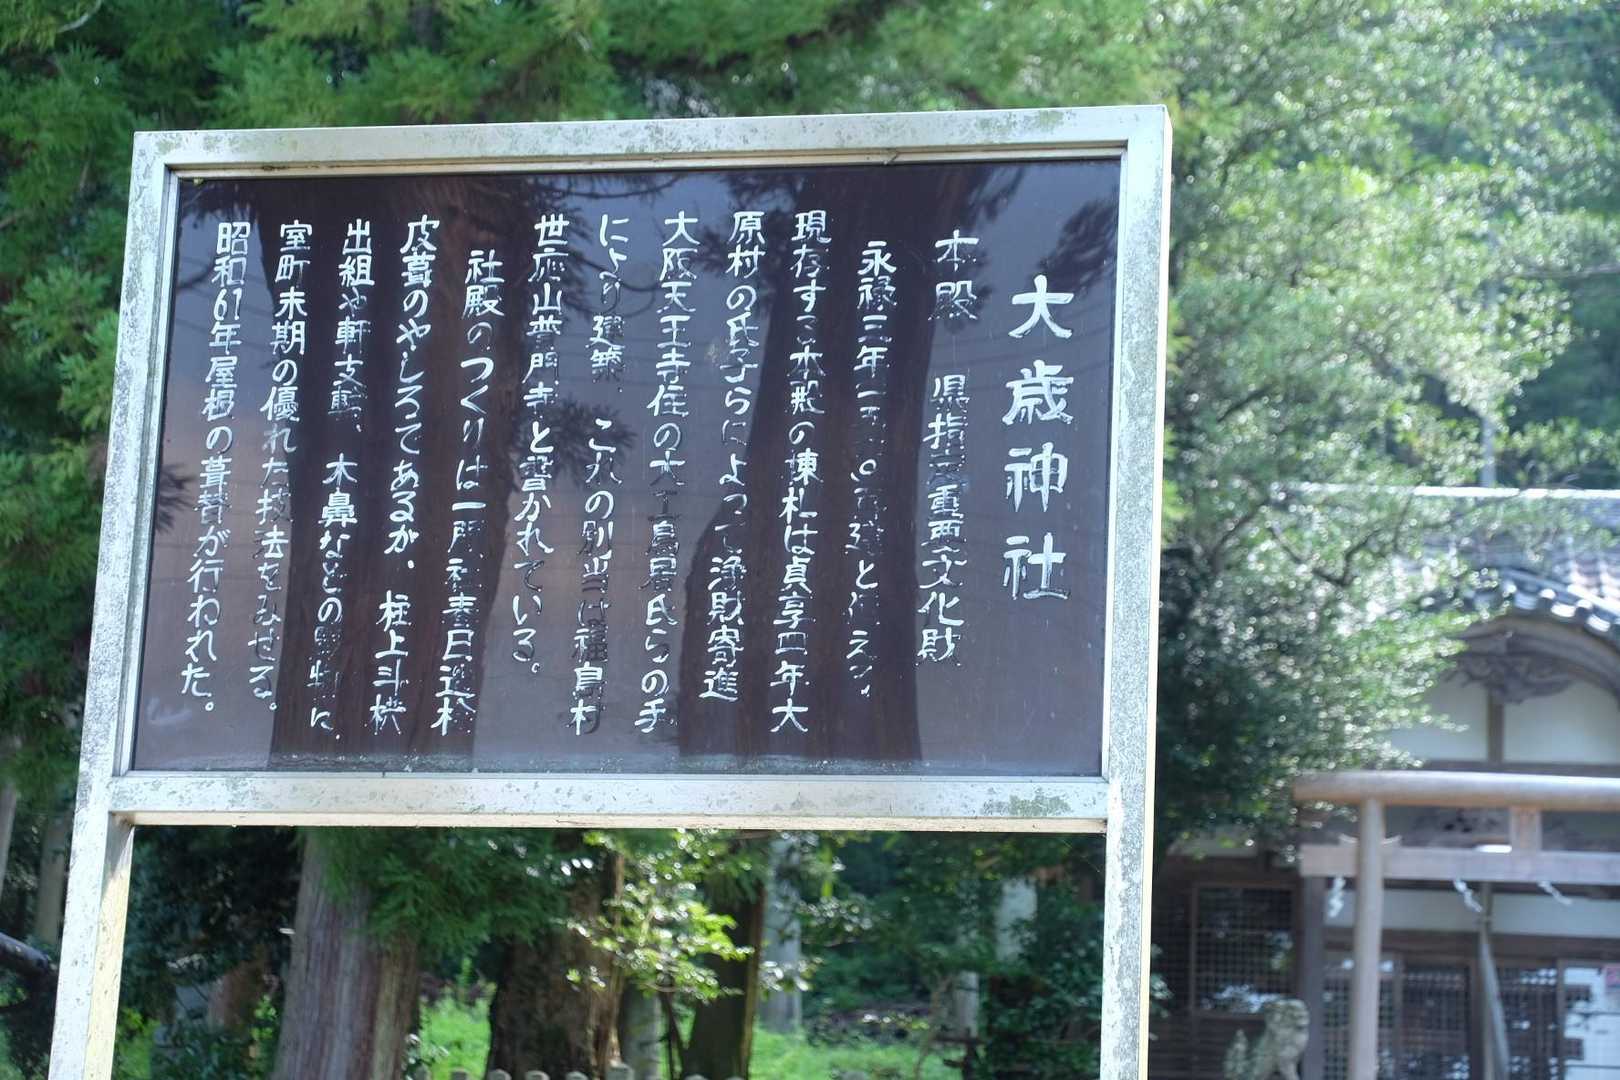 大歳神社
本殿 県指定重要文化財
永禄三年一五六〇再建と伝え、
現存する本殿の棟札は貞享四年大
原村の氏子らによって浄財寄進
大阪天王寺住の大工鳥居氏らの手
により建築、これの別当は福島村
世応山普門寺と書かれている。
社殿のつくりは一間社春日造桧
皮葺のやしろであるが、柱上斗栱
出組や軒支輪、木鼻などの彫物に、
室町末期の優れた技法をみせる。
昭和61年屋根の葺替が行われた。